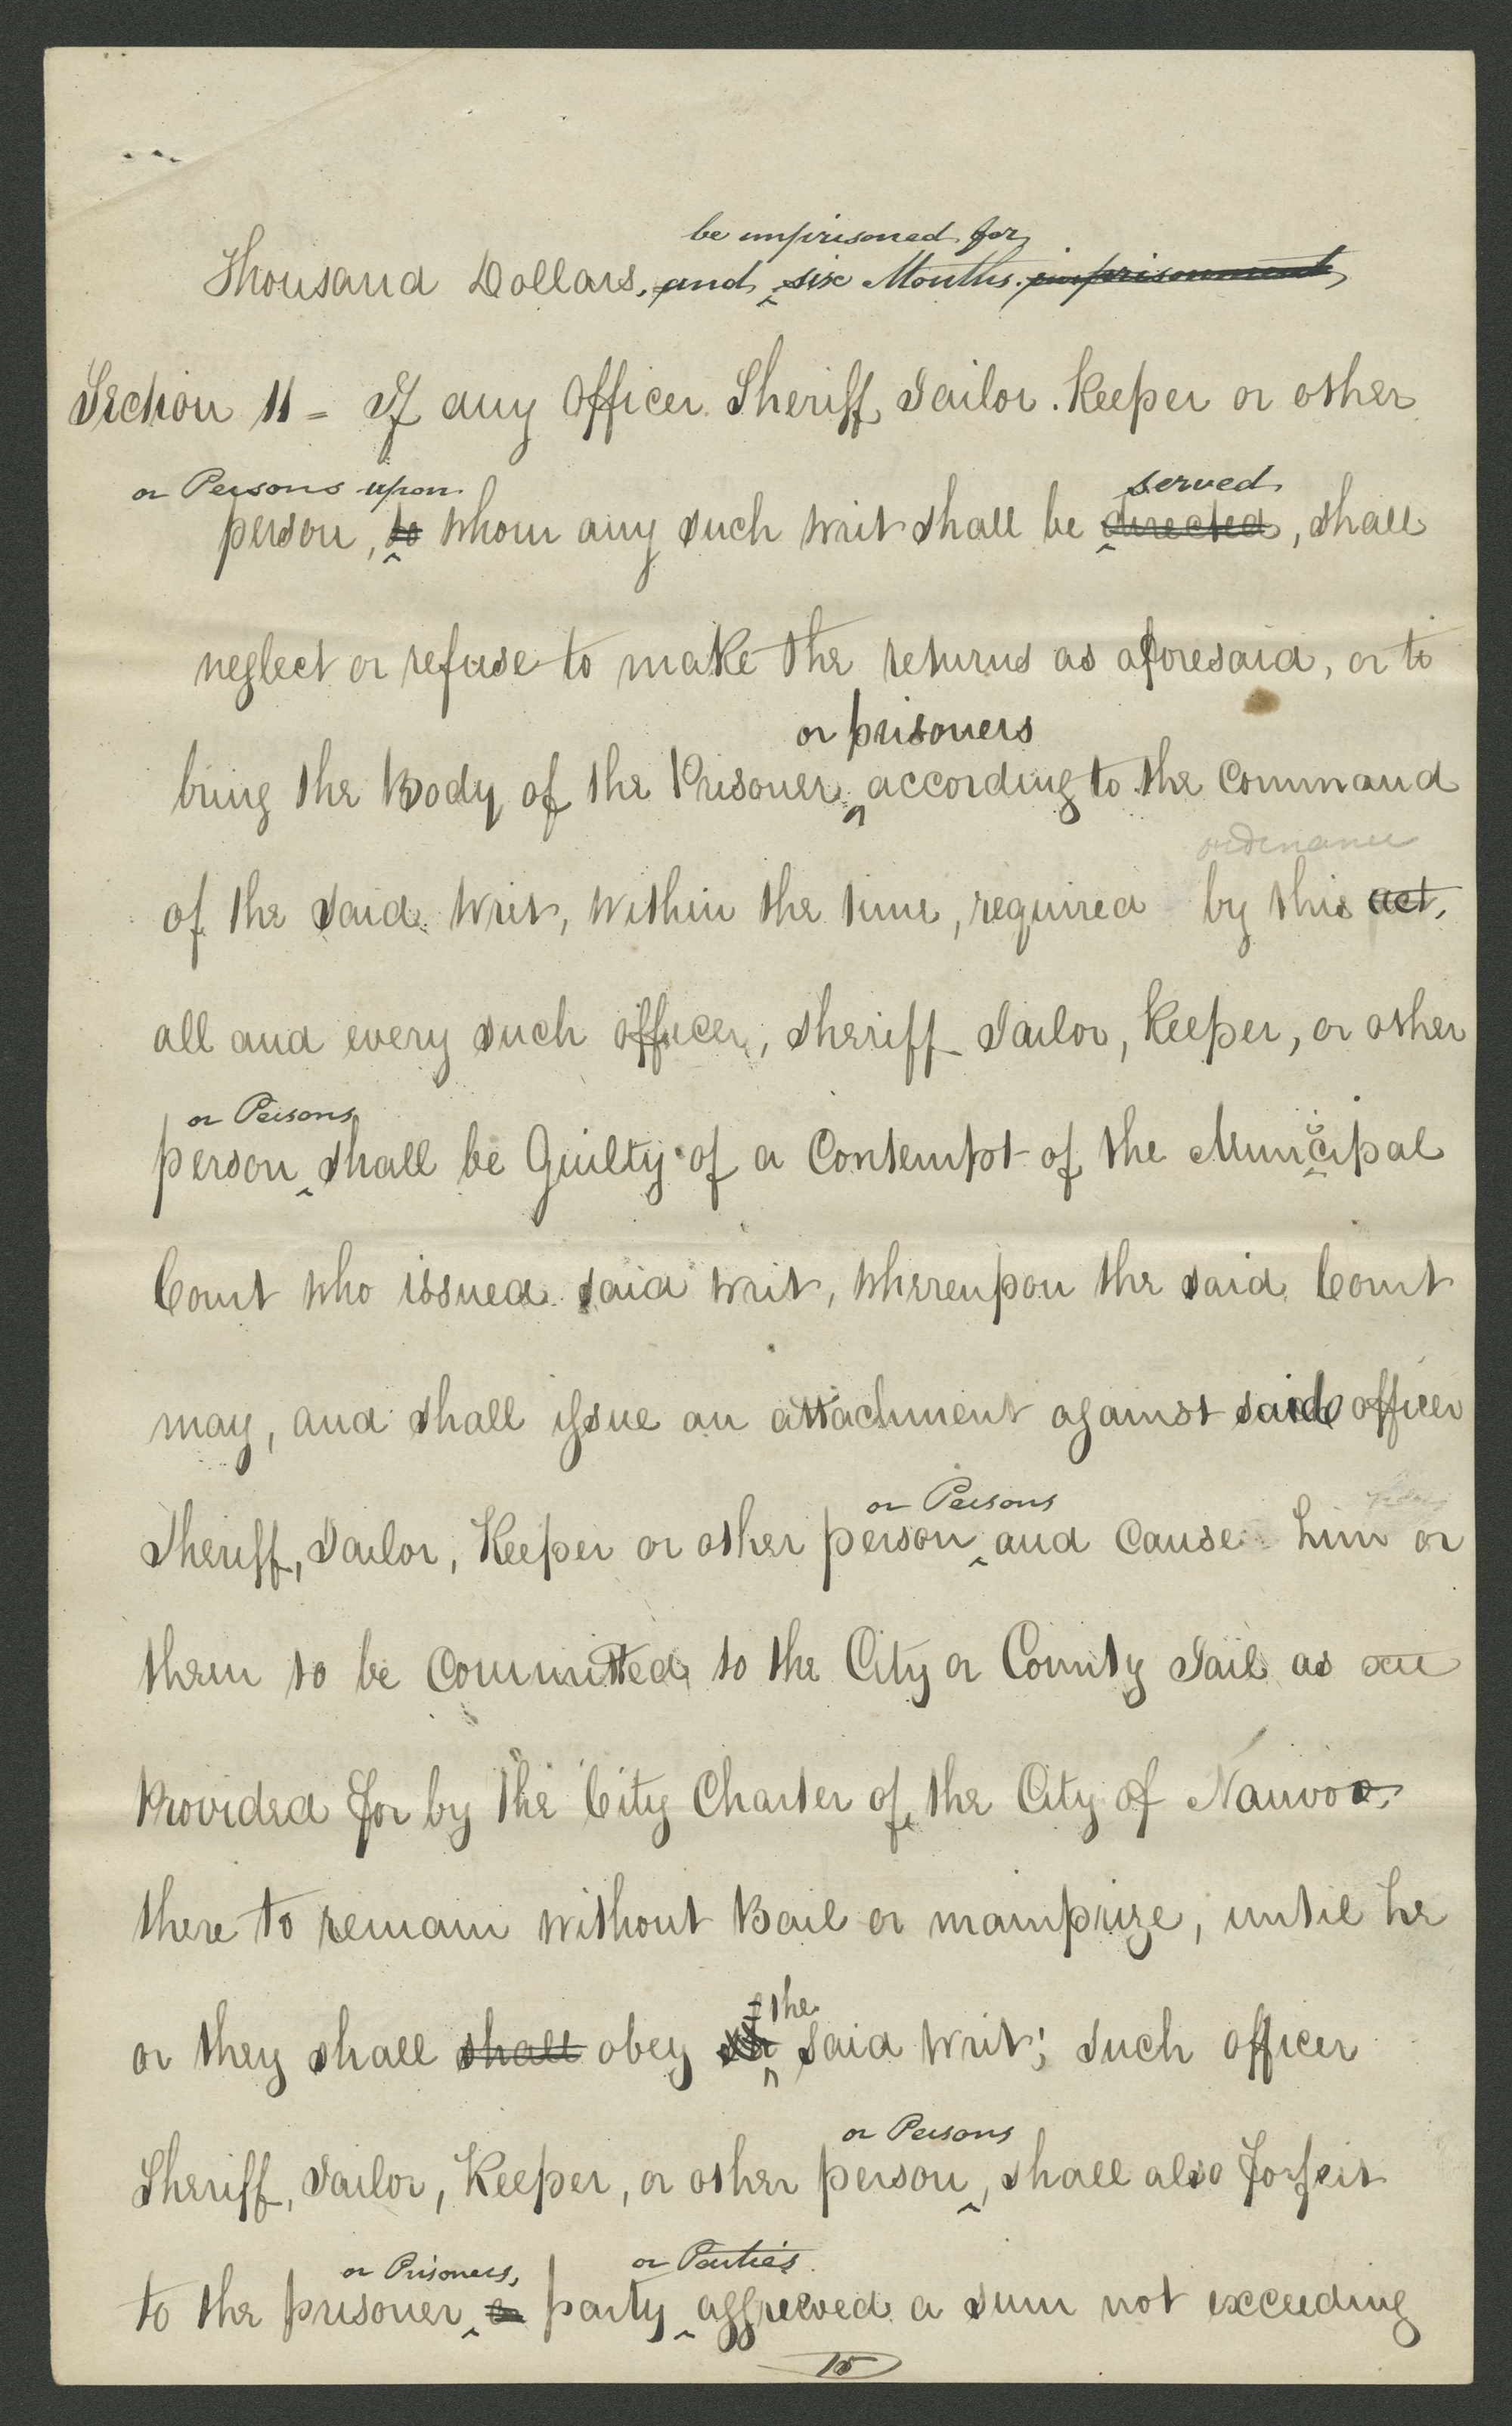 be imprisoned for
Thousand Dollars, and six Months. imprisonment
Section 11 - If any Officer. Sheriff, Jailor. Keeper or other
or Persons upon served
person, to whom any such writ shall be directed, shall
neglect or refuse to make the returns as aforesaid, or to
or prisoners
bring the Body of the Prisoner, according to the Command
ordinance
of the said writ, within the time, required by this act,
all and every such officer, sheriff Jailor, Keeper, or other
or Persons
person shall be Guilty of a Contempt of the Municipal
Court who issued said writ, whereupon the said Court
may, and shall issue an attachment against said officer
or Persons
Sheriff, Jailor, Keeper or other person and Cause him or
them to be Committed, to the City or County Jail as
Provided for by the City Charter of the City of Nauvoo,
there to remain without Bail or mainprize, until he
the
or they shall shall obey said writ; such officer
or Persons
Sheriff, Jailor, Keeper, or other person, shall also forfeit
or Prisoners, or Parties
to the prisoner or party aggrieved a sum not exceeding
15